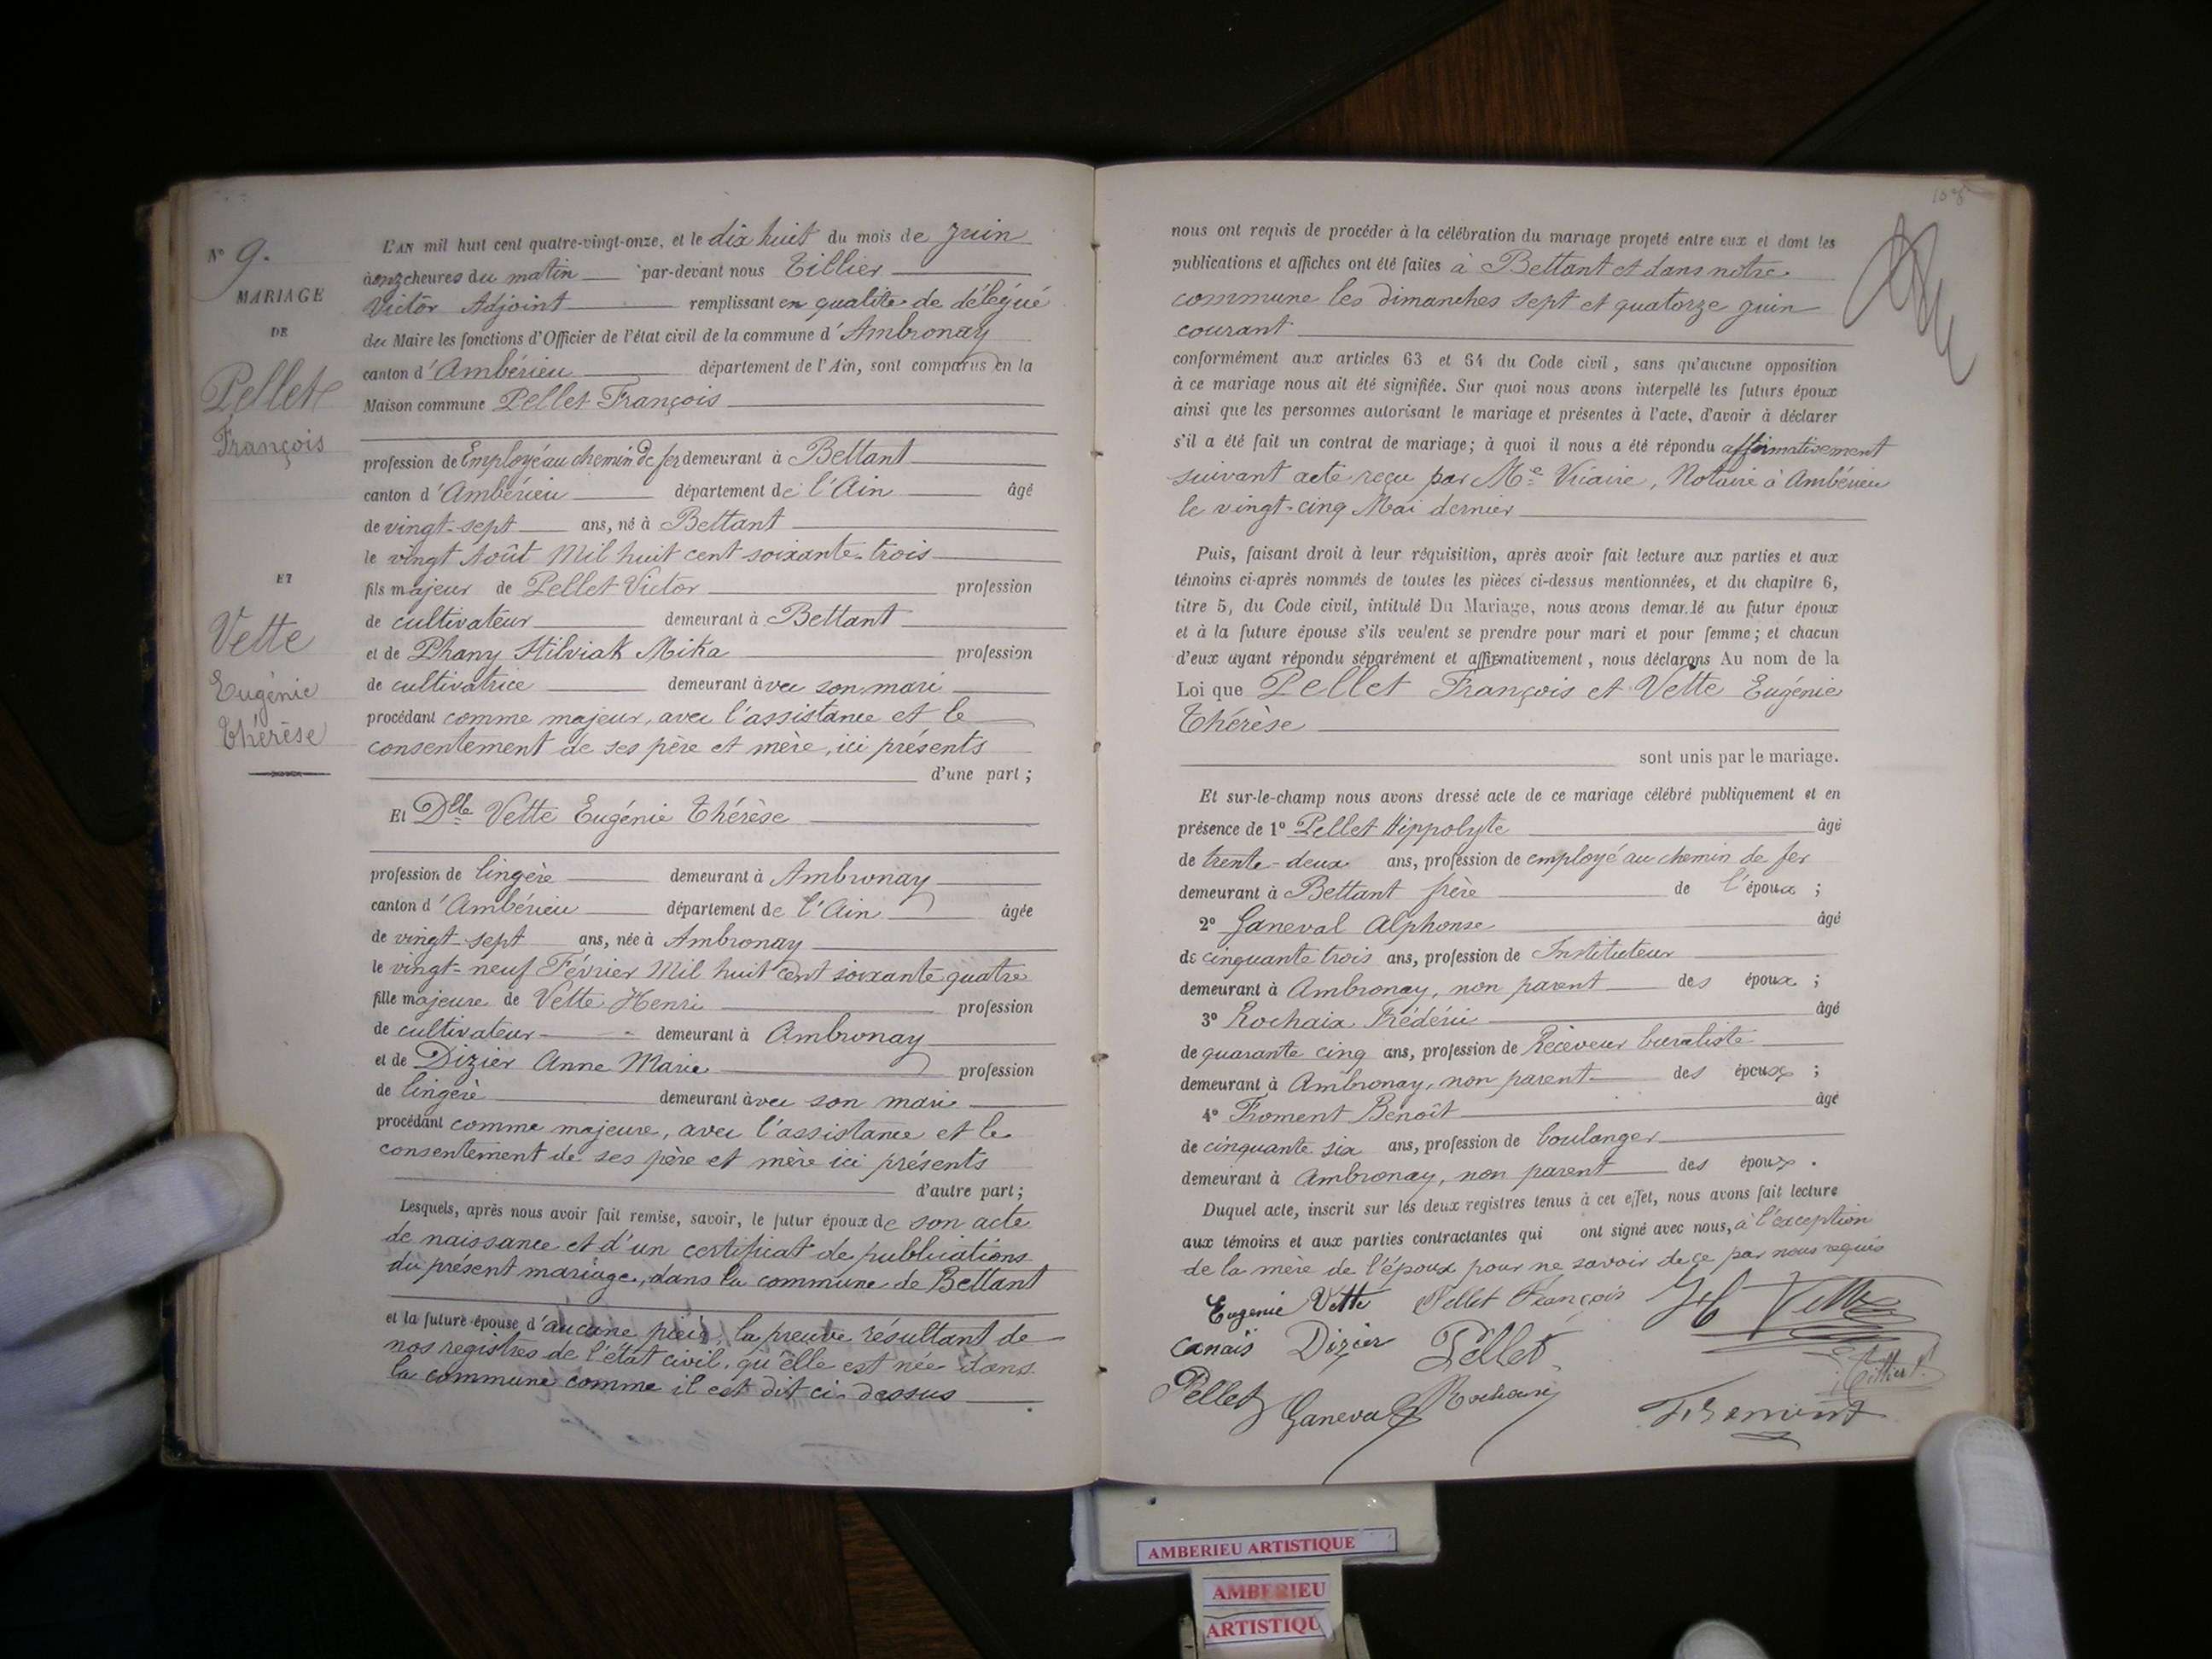 N° 9.
MARIAGE
DE
Pellet
François
ET
Vette
Eugénie
Thérèse
L'AN mil huit cent quatre-vingt-onze, et le dix huit du mois de Juin
à onze heures du matin par-devant nous Tillier
Victor Adjoint remplissant en qualité de délégué
du Maire les fonctions d'Officier de l'état civil de la commune d'Ambronay
canton d'Ambérieu département de l'Ain, sont comparus en la
Maison commune Pellet François
profession de Employé au chemin de fer demeurant à Bettant
canton d'Ambérieu département de l'Ain âgé
de vingt-sept ans, né à Bettant
le vingt Août Mil huit cent soixante-trois
fils majeur de Pellet Victor profession
de cultivateur demeurant à Bettant
et de Phany Hilviak Mika profession
de cultivatrice demeurant avec son mari
procédant comme majeur, avec l'assistance et le
consentement de ses père et mère, ici présents
d'une part;
Et Dlle Vette Eugénie Thérèse
profession de lingère demeurant à Ambronay
canton d'Ambérieu département de l'Ain âgée
de vingt-sept ans, née à Ambronay
le vingt-neuf Février Mil huit cent soixante quatre
fille majeure de Vette Henri profession
de cultivateur demeurant à Ambronay
et de Dizier Anne Marie profession
de lingère demeurant avec son mari
procédant comme majeure, avec l'assistance et le
consentement de ses père et mère ici présents
d'autre part;
Lesquels, après nous avoir fait remise, savoir, le futur époux de son acte
de naissance et d'un certificat de publications
du présent mariage, dans la commune de Bettant
et la future épouse d'aucune pièce, la preuve résultant de
nos registres de l'état civil, qu'elle est née dans
la commune comme il est dit ci-dessus
nous ont requis de procéder à la célébration du mariage projeté entre eux et dont les
publications et affiches ont été faites à Bettant et dans notre
commune les dimanches sept et quatorze juin
courant
conformément aux articles 63 et 64 du Code civil, sans qu'aucune opposition
à ce mariage nous ait été signifiée. Sur quoi nous avons interpellé les futurs époux
ainsi que les personnes autorisant le mariage et présentes à l'acte, d'avoir à déclarer
s'il a été fait un contrat de mariage; à quoi il nous a été répondu affirmativement
suivant acte reçu par Me Notaire à Ambérieu
le vingt-cinq Mai dernier
Puis, faisant droit à leur réquisition, après avoir fait lecture aux parties et aux
témoins ci-après nommés de toutes les pièces ci-dessus mentionnées, et du chapitre 6,
titre 5, du Code civil, intitulé Du Mariage, nous avons demandé au futur époux
et à la future épouse s'ils veulent se prendre pour mari et pour femme; et chacun
d'eux ayant répondu séparément et affirmativement, nous déclarons Au nom de la
Loi que Pellet François et Vette Eugénie
Thérèse
sont unis par le mariage.
Et sur-le-champ nous avons dressé acte de ce mariage célébré publiquement et en
présence de 1° Pellet Hippolyte âgé
de trente-deux ans, profession de employé au chemin de fer
demeurant à Bettant frère de l'époux;
2° Ganeval Alphonse âgé
de cinquante trois ans, profession de Instituteur
demeurant à Ambronay, non parent des époux;
3° Rochaix Frédéric âgé
de quarante cinq ans, profession de Receveur buraliste
demeurant à Ambronay, non parent des époux;
4° Froment Benoît âgé
de cinquante six ans, profession de boulanger
demeurant à Ambronay, non parent des époux.
Duquel acte, inscrit sur les deux registres tenus à cet effet, nous avons fait lecture
aux témoins et aux parties contractantes qui ont signé avec nous, à l'exception
de la mère de l'époux pour ne savoir de ce par nous requis
Eugenie Vette Pellet François Vette
Dizier Pellet
Tillier V.
Pellet Ganeval Rochaix Froment
AMBERIEU ARTISTIQUE
AMBERIEU
ARTISTIQU